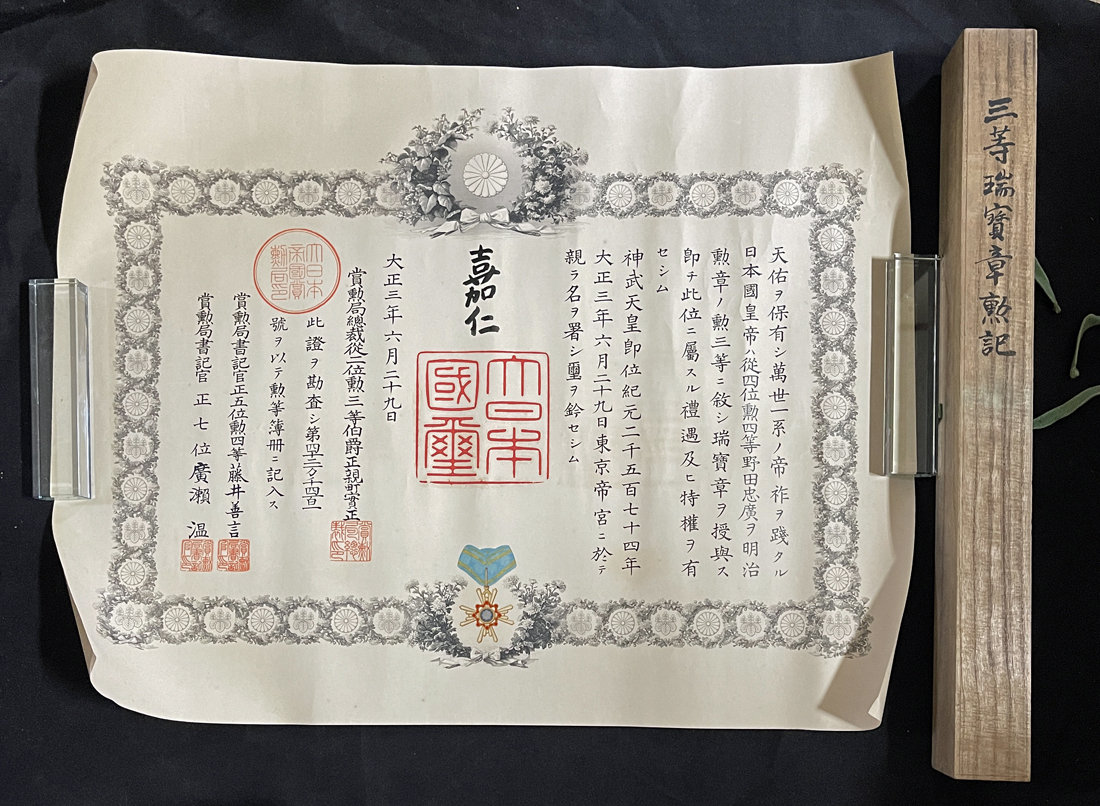 天佑ヲ保有シ萬世一系ノ帝祚ヲ踐タル
日本國皇帝ハ從四位勲四等野田忠廣ヲ明治
勲章ノ勲三等ニ敘シ瑞寶章ヲ授與ス
卽チ此位ニ屬スル禮遇及ヒ特權ヲ有
セシム
神武天皇卽位紀元二千五百七十四年
大正三年六月二十九日東京帝宮ニ於テ
親ラ名ヲ署シ璽ヲ鈐セシム
嘉仁
大日本
國璽
大正三年六月二十九日
賞勲局總裁從二位勲三等伯爵正親町實正
賞勲
局總
裁印
大日本
帝國賞
勲局印
此證ヲ勘査シ第四十二万千四百
號ヲ以テ勲等簿册ニ記入ス
賞勲局書記官正五位勲四等藤井善言
賞勲局書記官正七位廣瀬溫
三等瑞寶章勲記